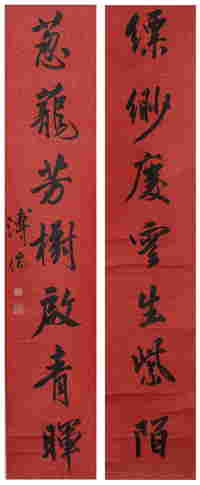 縹緲慶雲生紫陌
葱蘢芳樹啟青暉
溥